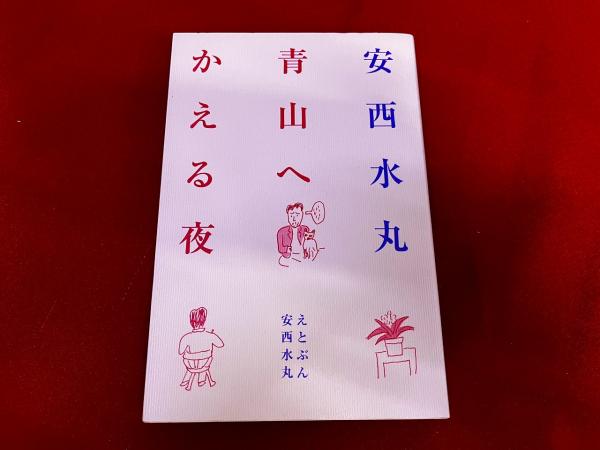 安西水丸
青山へ
かえる夜
えとぶん
安西水丸